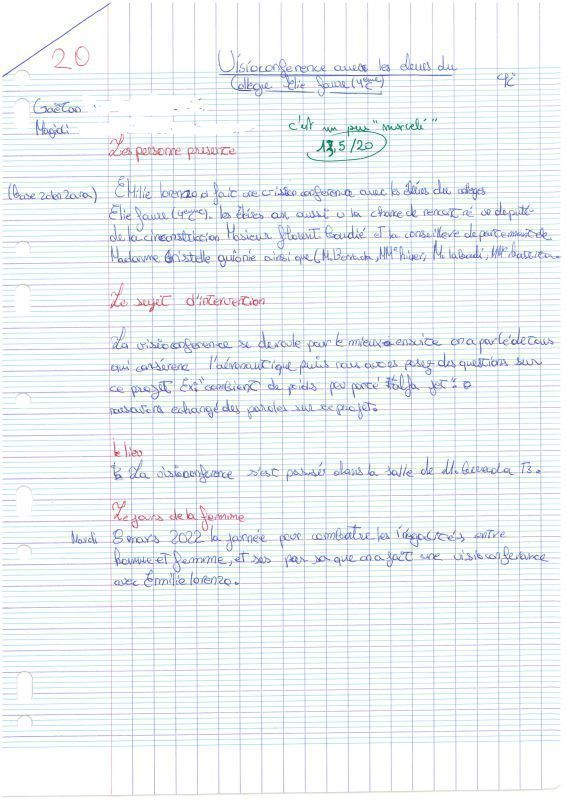 20
Visioconférence avec les élèves du
Collège Elie faure (4eme)
4C
Gaëtan
Magidi
c'est un peu "morcelé"
13,5/20
Les personne presente
(base 2 den 2 aran)
EMilie lorenzo a fait une vission conférence avec les élèves du colèges
Elie faure (4eme). les élèves on aussi u la chance de rencontré le députe
de la circonstriccion Monsieur florent boudié et la conseillere departement de
Madamme Cristelle guionie ainsi que (M. Berrada, MMe hiver, M. labadi, MMe
Le sujet d'intervention
La visioconférence se deroule par le mieux ensuite on a parlé de tous
qui consérene l'aéronautique puis nous avons posez des questions sur
ce projet Ex: "combient de poids peu porté l'alfa jet".
nous avons échangé des paroles sur ce projet.
le lieu
La visioconférence s'est passée dans la salle de M. Berrada T3.
Le jours de la femme
Mardi 8 mars 2022 la journée pour combattre les inégalités entre
homme et femme, et ses par sa que on a fait une visioconférence
avec Emilie lorenzo.